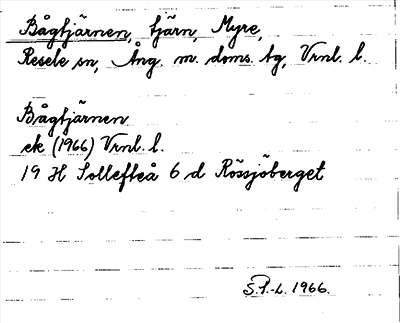 Bågtjärnen, tjärn, Myre,
Resele sn, Ång. m. doms. tg, Vrnl. l.
Bågtjärnen
ek (1966) Vrnl. l.
19 H Sollefteå 6 d Rössjöberget
S.P.-L. 1966.